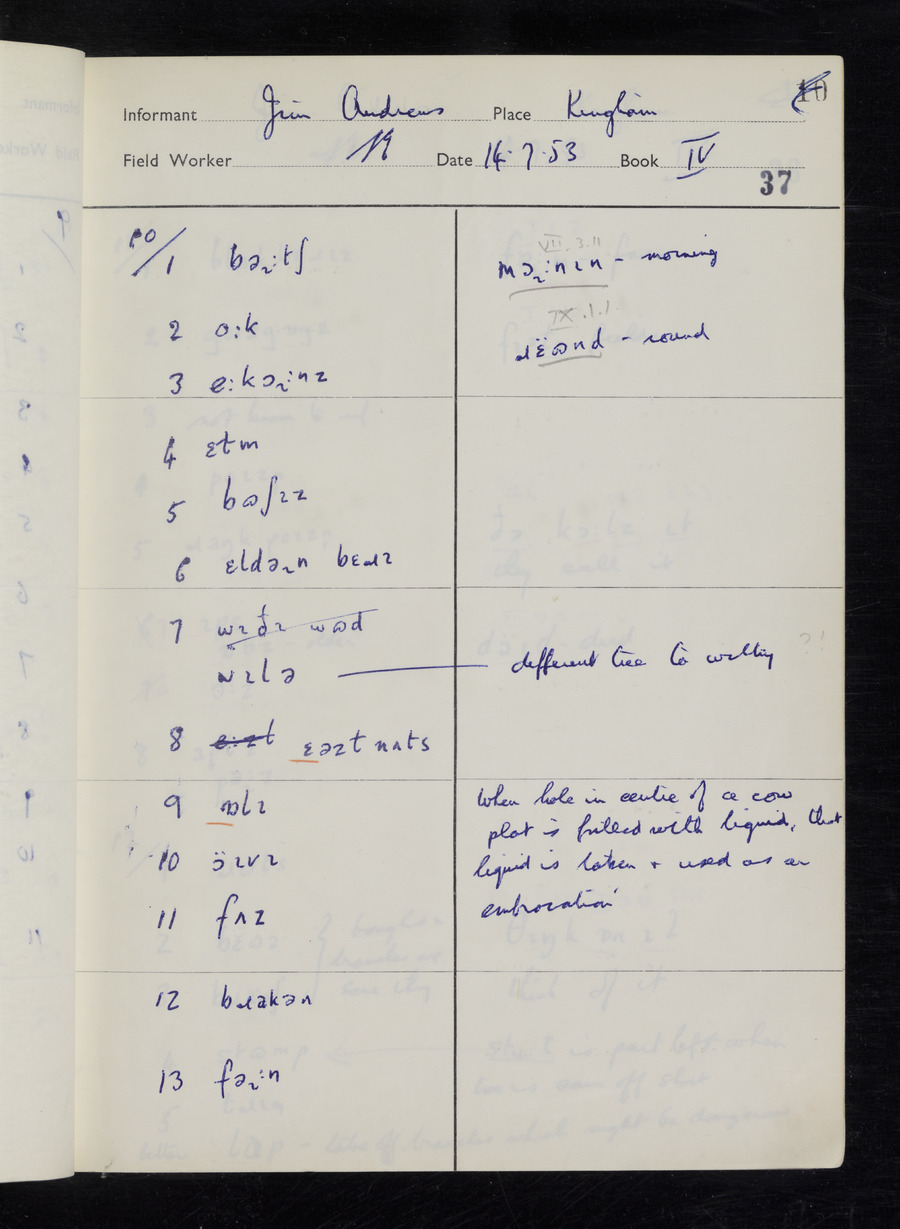 10
Informant Jim Andrews Place Kingham
Field Worker Date 14.7.53 Book IV
37
10/
1 bəɪ:tʃ
2 o:k
3 e:kəɪ:nz
4 ɛtm
5 bɷʃɪz
6 ɛldəɪn bɛɹɪ
7 wɪðɪ wɷd
wɪlə
8 e:zt ɛəzt nʌts
9 ɒlɪ
10 ɔ̈ɪvɪ
11 fʌz
12 bɹakən
13 fəɪ:n
VII.3.11
mɔɪ:nɪn - morning
IX.1.1
ɹɛ̈ɷnd - round
different tree to withy ?!
When hole in centre of a cow
plat is filled with liquid, that
liquid is taken + used as an
embrocation